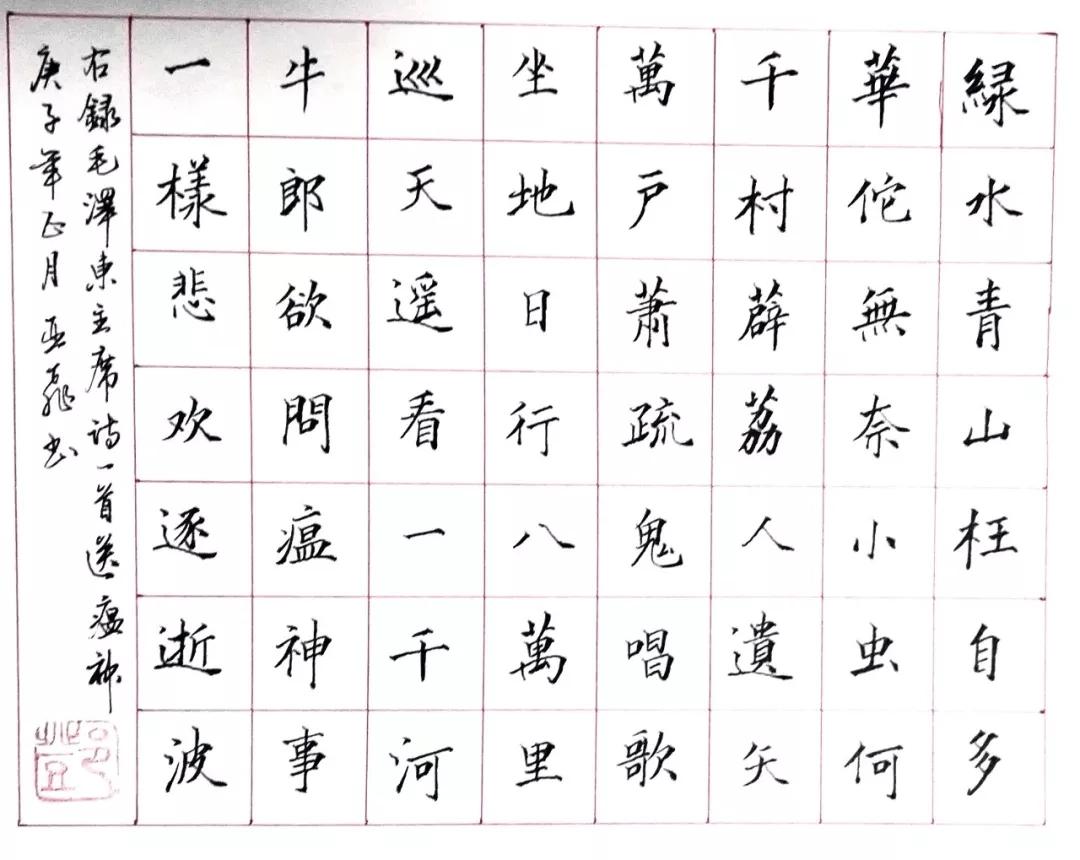 緑水青山枉自多
華佗無奈小虫何
千村薜荔人遺矢
萬戸蕭疏鬼唱歌
坐地日行八萬里
巡天遥看一千河
牛郎欲問瘟神事
一樣悲欢逐逝波
右録毛澤東主席诗一首送瘟神
庚子年正月 亚飛书